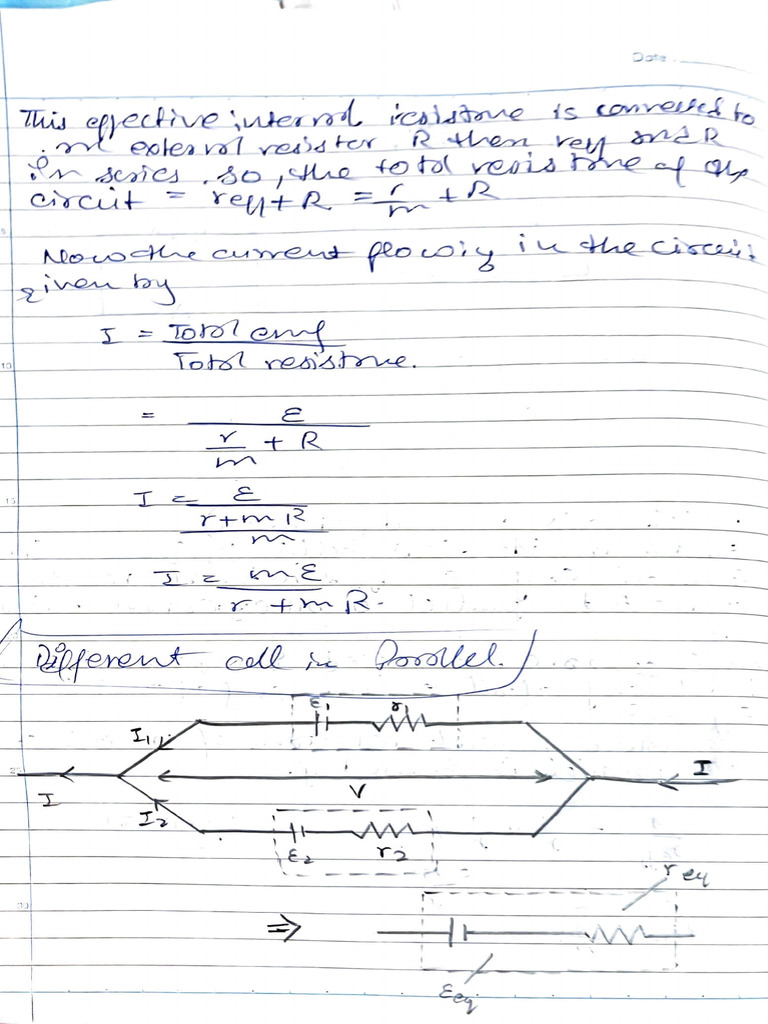 Date
This effective internal resistance is connected to
an external resistor R then req and R
in series. so, the total resistance of the
circuit = req + R = r/m + R
Now the current flowing in the circuit
given by
I = Total emf / Total resistance.
= ε / (r/m + R)
I = ε / ((r + mR)/m)
I = mε / (r + mR)
Different cell in Parallel.
ε1 r1
I1
I
V
I
I2
ε2 r2
req
⇒
εeq